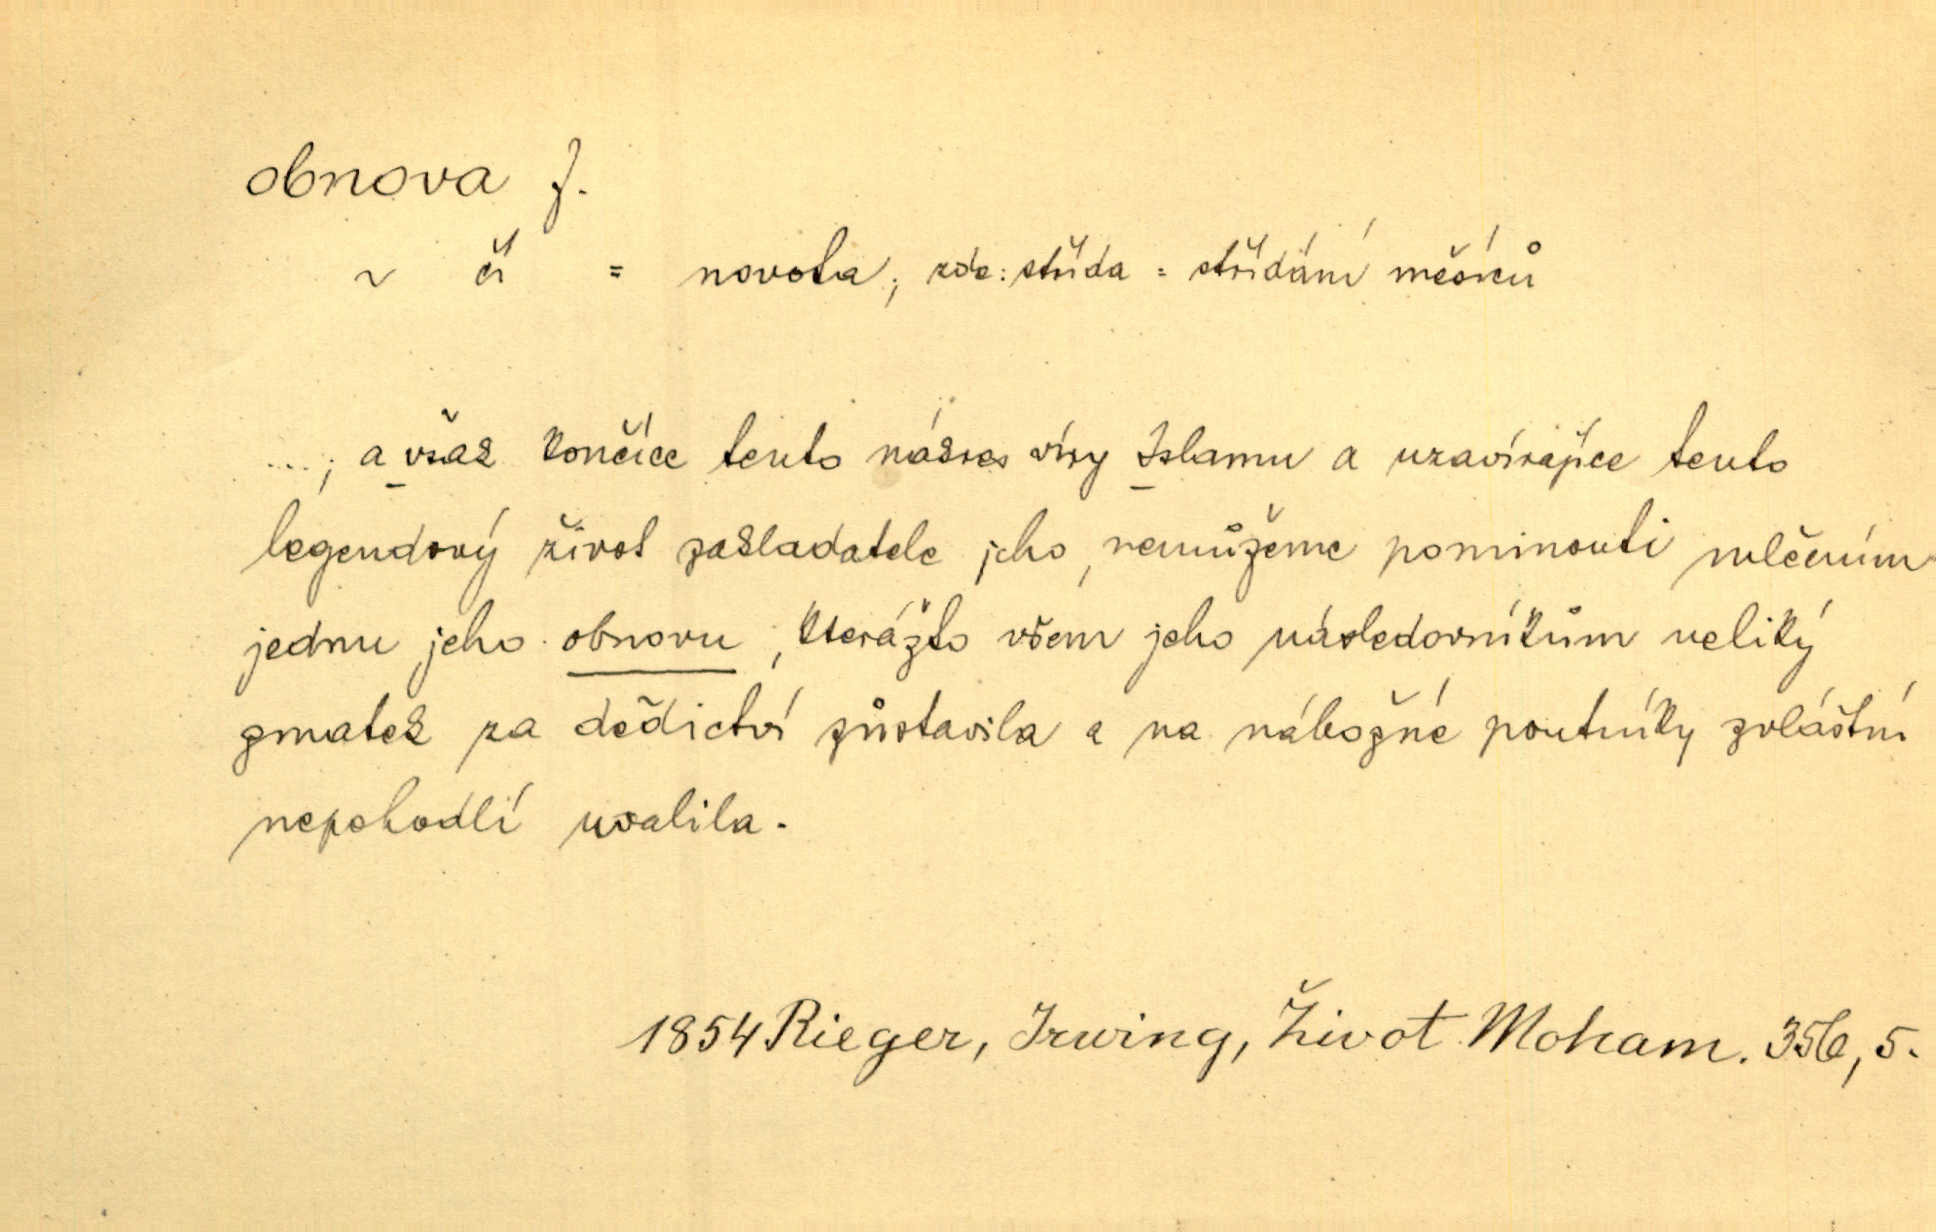 obnova f.
~ čí = novota; zde: střída = střídání měsíců
...; a však končíce tento nákres víry Islamu a uzavírajíce tento
legendový život zakladatele jeho, nemůžeme pominouti mlčením
jednu jeho obnovu, kterážto všem jeho následovníkům veliký
zmatek za dědictví zůstavila a na nábožné poutníky zvláštní
nepohodlí uvalila.
1854 Rieger, Irwing, Život Moham. 356, 5.